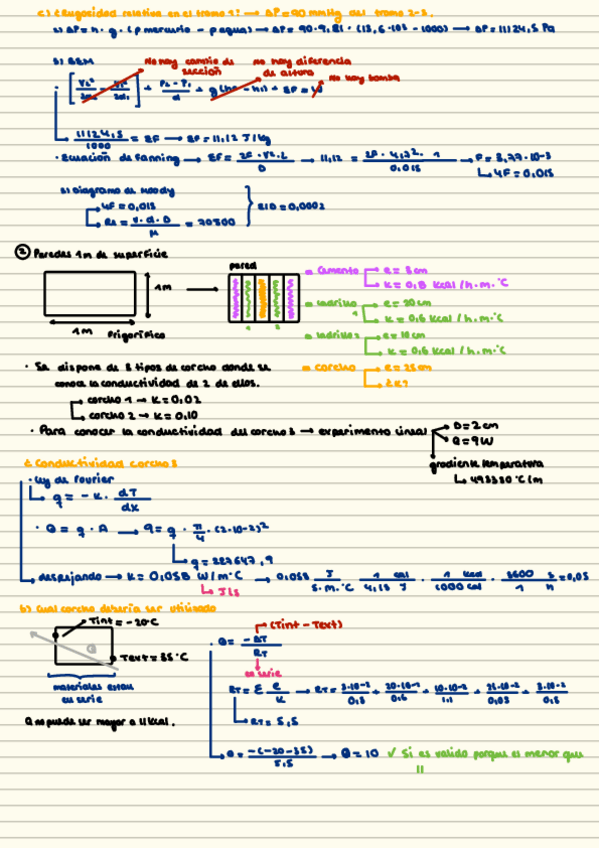 c) ¿Rugosidad relativa en el tramo 1? → ΔP = 90 mmHg del tramo 2-3.
1) ΔP = h · g · (ρ mercurio - ρ agua) → ΔP = 90 · 9,81 · (13,6 · 10³ - 1000) → ΔP = 11124,5 Pa
2) BEM
No hay cambio de sección
no hay diferencia de altura
No hay bomba
11124,5 / 1000 = ΣF → ΣF = 11,12 J/kg
· Ecuación de Fanning → ΣF = 2F · V² · L / D → 11,12 = 2F · 4,72² · 1 / 0,015 → F = 3,77 · 10⁻³
↳ 4F = 0,015
3) Diagrama de Moody
4F = 0,015
Re = v · d · D / μ = 70800
ε/D = 0,0002
② Paredes 1m de superficie
1m
1m
Frigorífico
pared
Cemento → e = 8 cm
k = 0,8 kcal/h·m·°C
ladrillo 1 → e = 20 cm
k = 0,6 kcal/h·m·°C
ladrillo 2 → e = 10 cm
corcho → e = 25 cm
¿k?
· Se dispone de 3 tipos de corcho donde se
conoce la conductividad de 2 de ellos.
corcho 1 → k = 0,02
corcho 2 → k = 0,10
· Para conocer la conductividad del corcho 3 → experimento lineal
D = 2 cm
Q = 9 W
gradiente temperatura
↳ 493330 °C/m
¿Conductividad corcho 3
· Ley de Fourier
q = -k · dT / dx
· Q = q · A → 9 = q · π/4 · (2·10⁻²)²
q = 28647,9
despejando → k = 0,058 W/m·°C → 0,058 J / s·m·°C · 1 cal / 4,18 J · 1 kcal / 1000 cal · 3600 s / 1 h = 0,05
↳ J/s
b) Cual corcho debería ser utilizado
Tint = -20°C
Q
Text = 35°C
materiales estan
en serie
Q no puede ser mayor a 11 kcal.
· Q = -ΔT / RT
(Tint - Text)
en serie
RT = Σ e / k
RT = 5,5
Q = -(-20-35) / 5,5 → Q = 10 ✓ Si es valido porque es menor que
11